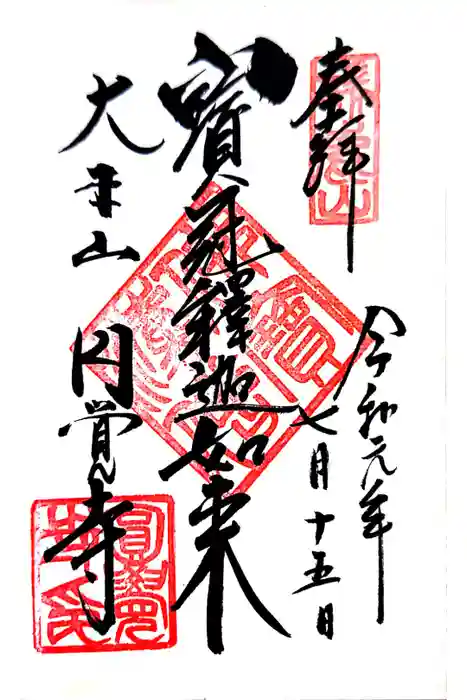 奉拝
瑞鹿山
令和元年
七月十五日
寶冠釋迦如来
大本山
円覚寺